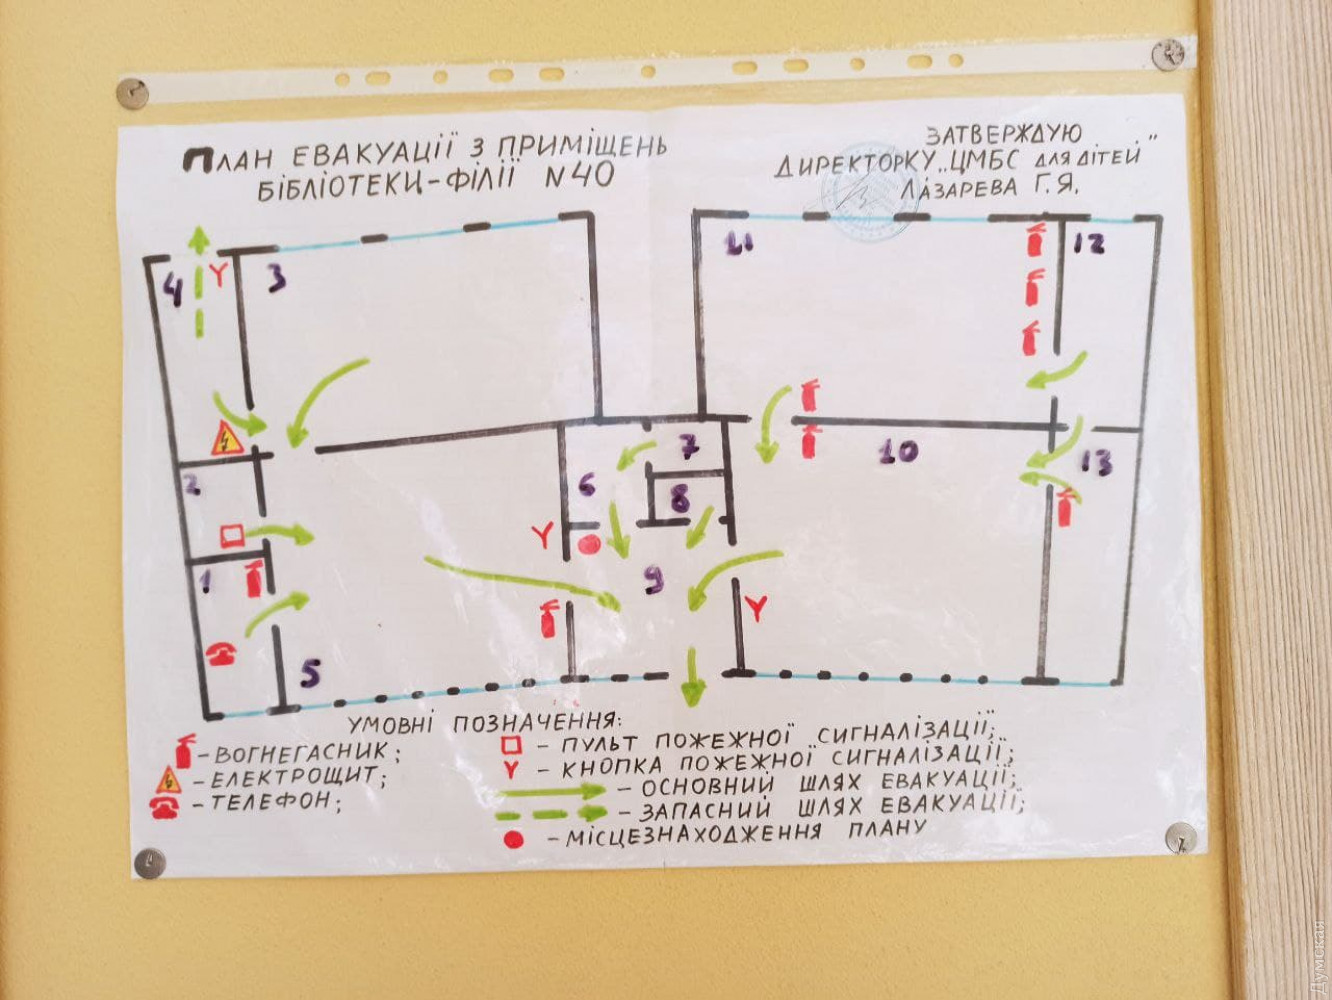 ПЛАН ЕВАКУАЦІЇ З ПРИМІЩЕНЬ
БІБЛІОТЕКИ-ФІЛІЇ N40
ЗАТВЕРДЖУЮ
ДИРЕКТОРКУ „ЦМБС ДЛЯ ДІТЕЙ"
ЛАЗАРЕВА Г.Я.
4
3
11
12
2
6
7
8
10
13
1
9
5
УМОВНІ ПОЗНАЧЕННЯ:
- ВОГНЕГАСНИК;
- ЕЛЕКТРОЩИТ;
- ТЕЛЕФОН;
- ПУЛЬТ ПОЖЕЖНОЇ СИГНАЛІЗАЦІЇ;
- КНОПКА ПОЖЕЖНОЇ СИГНАЛІЗАЦІЇ;
- ОСНОВНИЙ ШЛЯХ ЕВАКУАЦІЇ;
- ЗАПАСНИЙ ШЛЯХ ЕВАКУАЦІЇ;
- МІСЦЕЗНАХОДЖЕННЯ ПЛАНУ
Думская